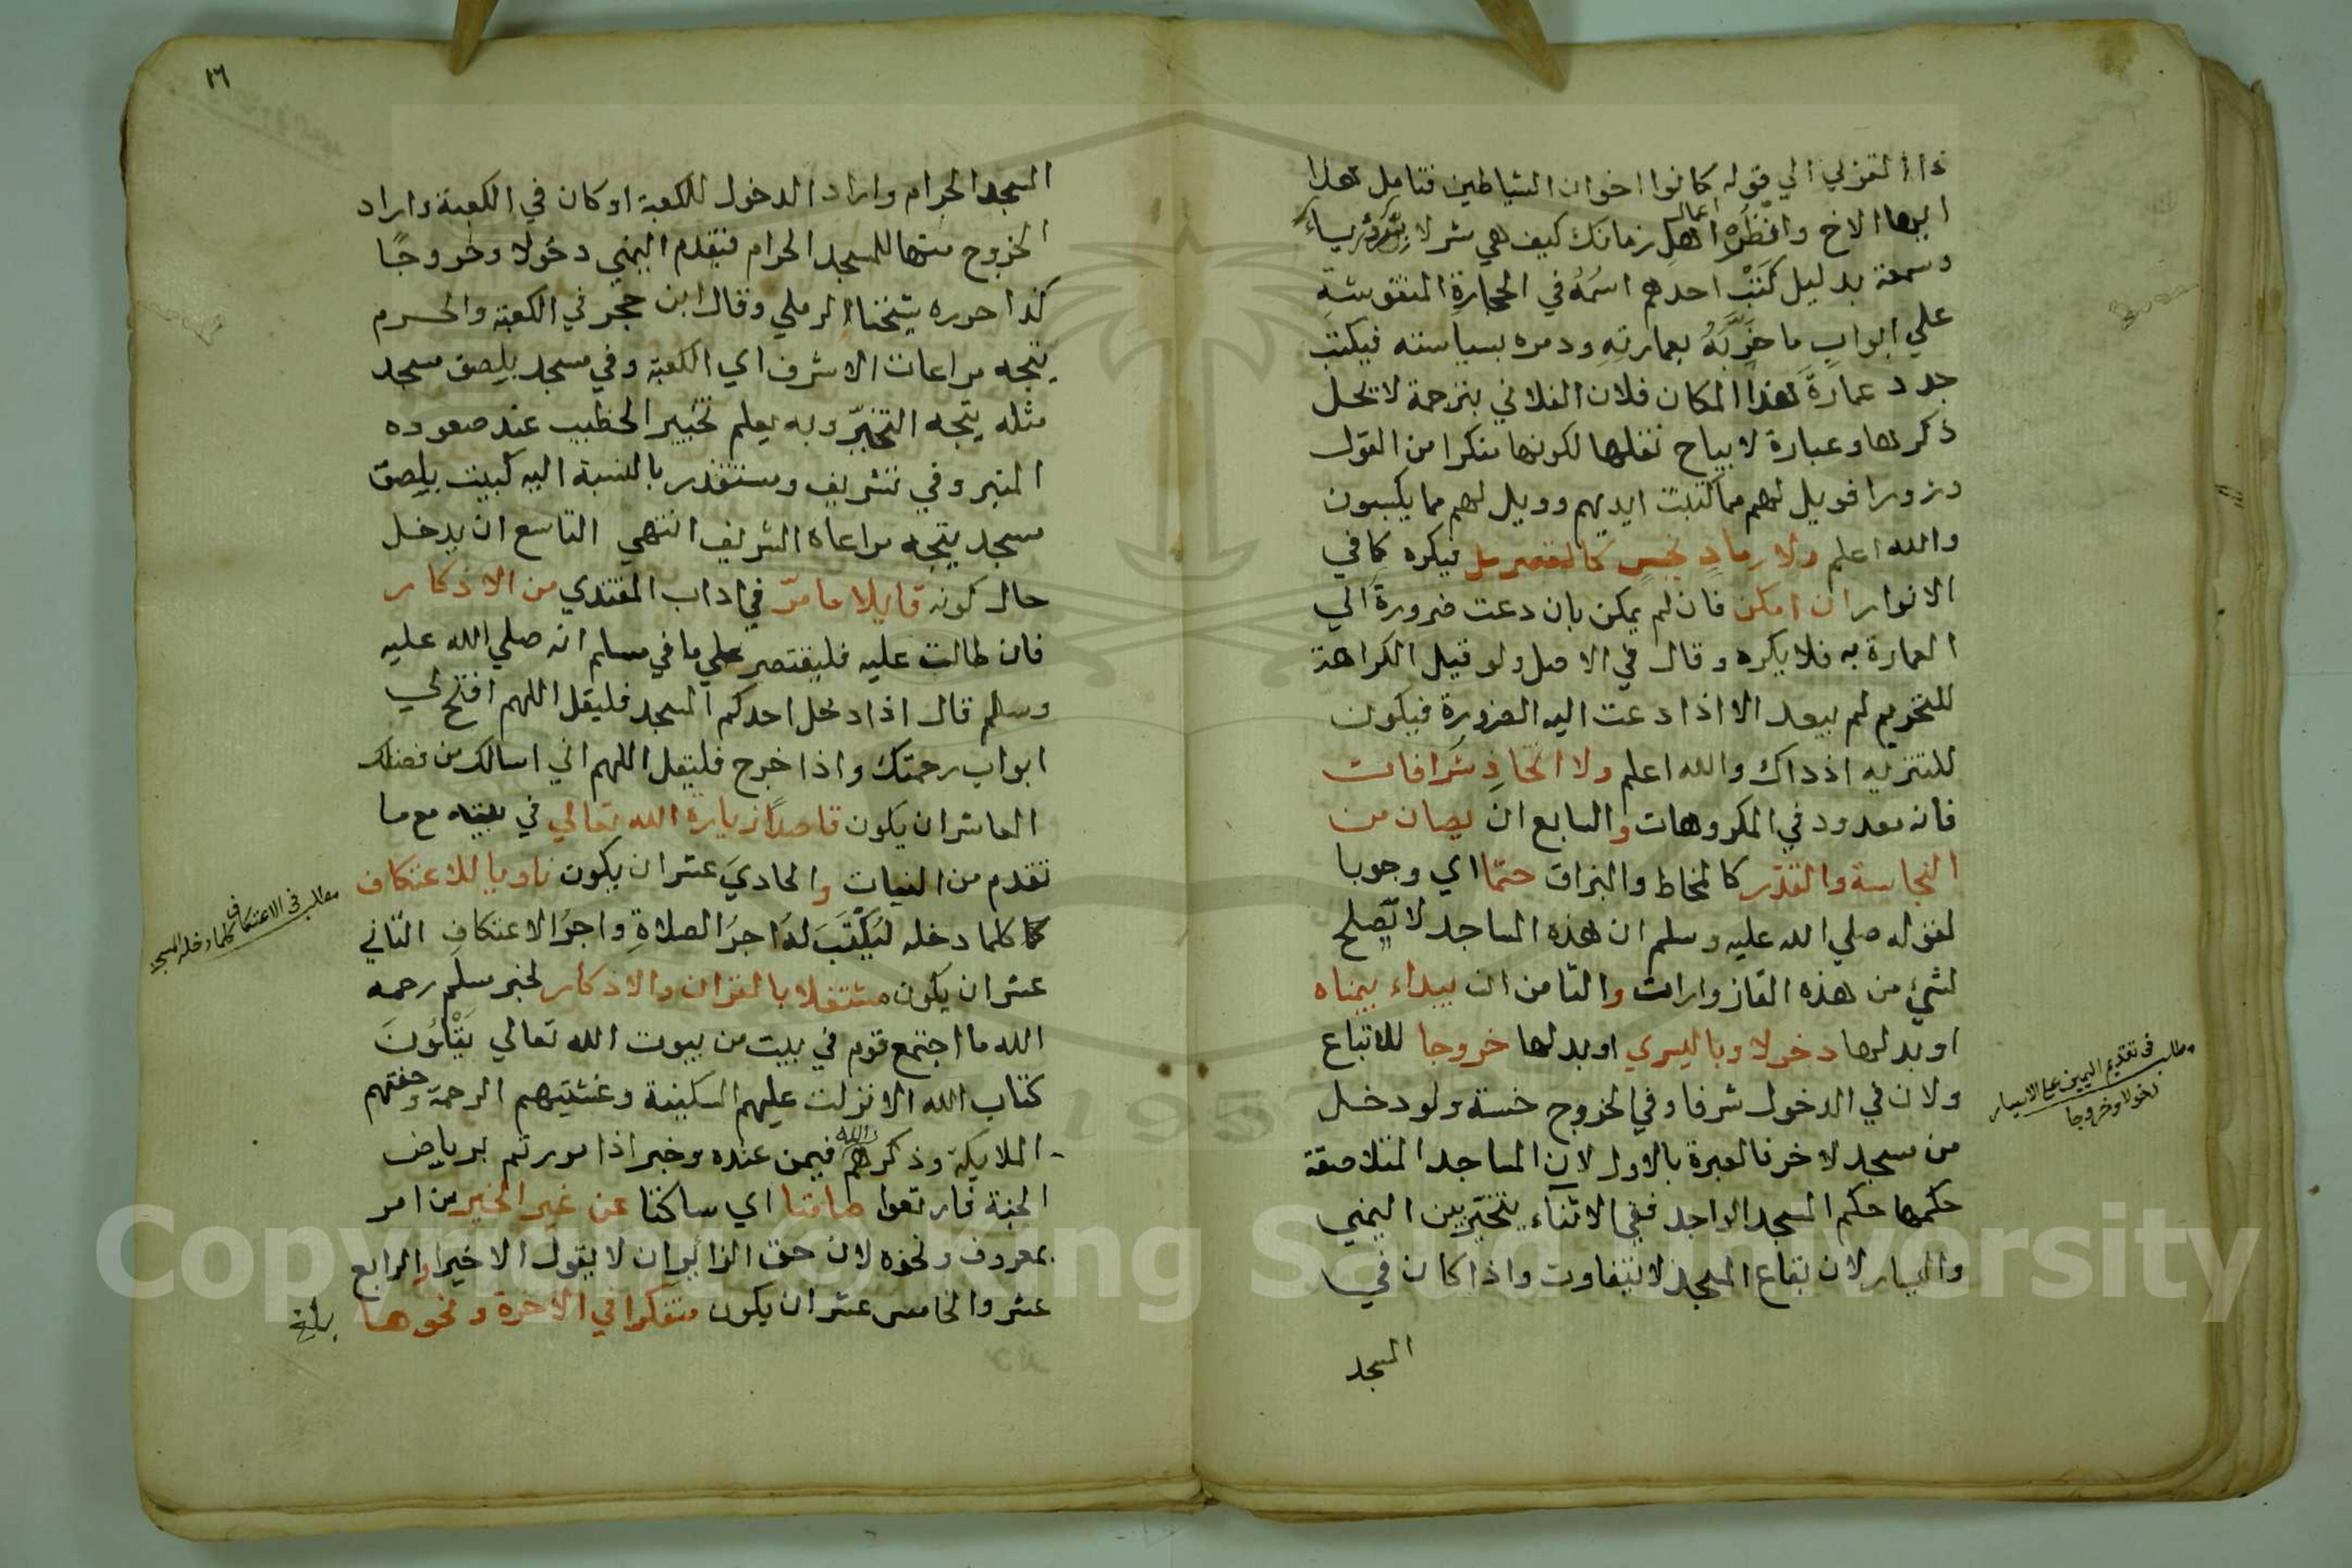 ذا القربي الي قوله كانوا اخوان الشياطين فتامل هذا
ايها الاخ وانظر اعمال اهل زمانك كيف هي شر لا رياء
وسمعة بدليل كتب احدهم اسمه في الحجارة المنقوشة
علي ابواب ما خربه بعمارته ودمره بسياسته فيكتب
جدد عمارة هذا المكان فلان الفلاني بترجمة لا يحل
ذكرها وعبارة لا يباح نقلها لكونها منكرا من القول
وزورا فويل لهم مما كتبت ايديهم وويل لهم مما يكسبون
والله اعلم ولا رماد نجس كالقصرمل فيكره كما في
الانوار ان امكن فان لم يمكن بان دعت ضرورة الي
العمارة به فلا يكره وقال في الاصل ولو قيل الكراهة
للتحريم لم يبعد الا اذا دعت اليه الضرورة فيكون
للتنزيه اذ ذاك والله اعلم ولا اتخاذ شرافات
فانه معدود في المكروهات والسابع ان يصان من
النجاسة والقذر كالمخاط والبزاق حتما اي وجوبا
لقوله صلي الله عليه وسلم ان هذه المساجد لا يصلح
لشئ من هذه القازوارات والثامن ان يبداء بيمناه
او بدلها دخولا وباليسري او بدلها خروجا للاتباع
ولان في الدخول شرفا وفي الخروج خسة ولو دخل
من مسجد لاخر فالعبرة بالاول لان المساجد المتلاصقة
حكمها حكم المسجد الواحد ففي الاثناء يتخير بين اليمني
واليسار لان بقاع المسجد لا تتفاوت واذا كان في
المسجد
مطلب في تقديم اليمين علي اليسار
دخولا وخروجا
١٦
المسجد الحرام واراد الدخول للكعبة او كان في الكعبة واراد
الخروج منها للمسجد الحرام فيقدم اليمني دخولا وخروجا
كذا حرره شيخنا الرملي وقال ابن حجر في الكعبة والحرم
يتجه مراعات الاشرف اي الكعبة وفي مسجد بلصق مسجد
مثله يتجه التخير وبه يعلم تخيير الخطيب عند صعوده
المنبر وفي شريف ومستقذر بالنسبة اليه كبيت بلصق
مسجد يتجه مراعاة الشريف انتهي التاسع ان يدخل
حال كونه قايلا ما مر في اداب المقتدي من الاذكار
فان طالت عليه فليقتصر علي ما في مسلم انه صلي الله عليه
وسلم قال اذا دخل احدكم المسجد فليقل اللهم افتح لي
ابواب رحمتك واذا خرج فليقل اللهم اني اسالك من فضلك
العاشر ان يكون قاصدا زيارة الله تعالي في بيته مع ما
تقدم من النيات والحادي عشر ان يكون ناويا للاعتكاف
كلما دخله ليكتب له اجر الصلاة واجر الاعتكاف الثاني
عشر ان يكون مشتغلا بالقران والاذكار لخبر مسلم رحمه
الله ما اجتمع قوم في بيت من بيوت الله تعالي يتلون
كتاب الله الا نزلت عليهم السكينة وغشيتهم الرحمة وحفتهم
الملايكة وذكرهم الله فيمن عنده وخبر اذا مررتم برياض
الجنة فارتعوا صامتا اي ساكتا عن غير الخير من امر
بمعروف ونحوه لان حق الزائر ان لا يقول الا خيرا والرابع
عشر والخامس عشر ان يكون متفكرا في الاخرة ونحوها
مطلب في الاعتكاف كلما دخل المسجد
بلغ
Copyright © King Saud University
1957